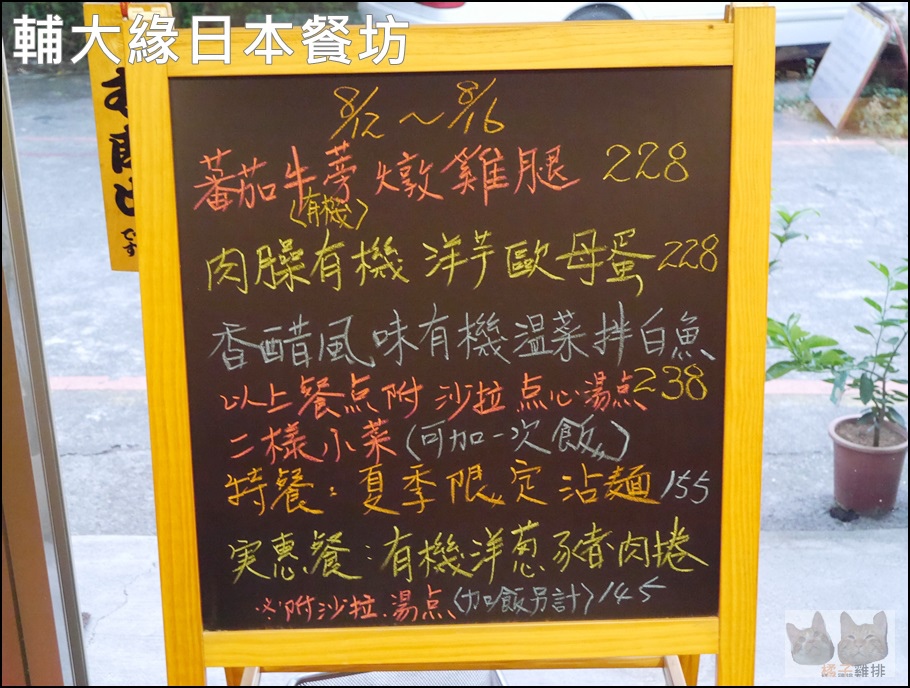 輔大緣日本餐坊
8/12～8/16
蕃茄牛蒡燉雞腿 228
(有機)
肉臊有機洋芋歐母蛋 228
香醋風味有機溫菜拌白魚
238
以上餐点附沙拉点心湯点
二樣小菜(可加一次飯)
特餐:夏季限定沾麵 155
実惠餐:有機洋葱豬肉捲
※附沙拉.湯点(加飯另計) 145
橘子雞排